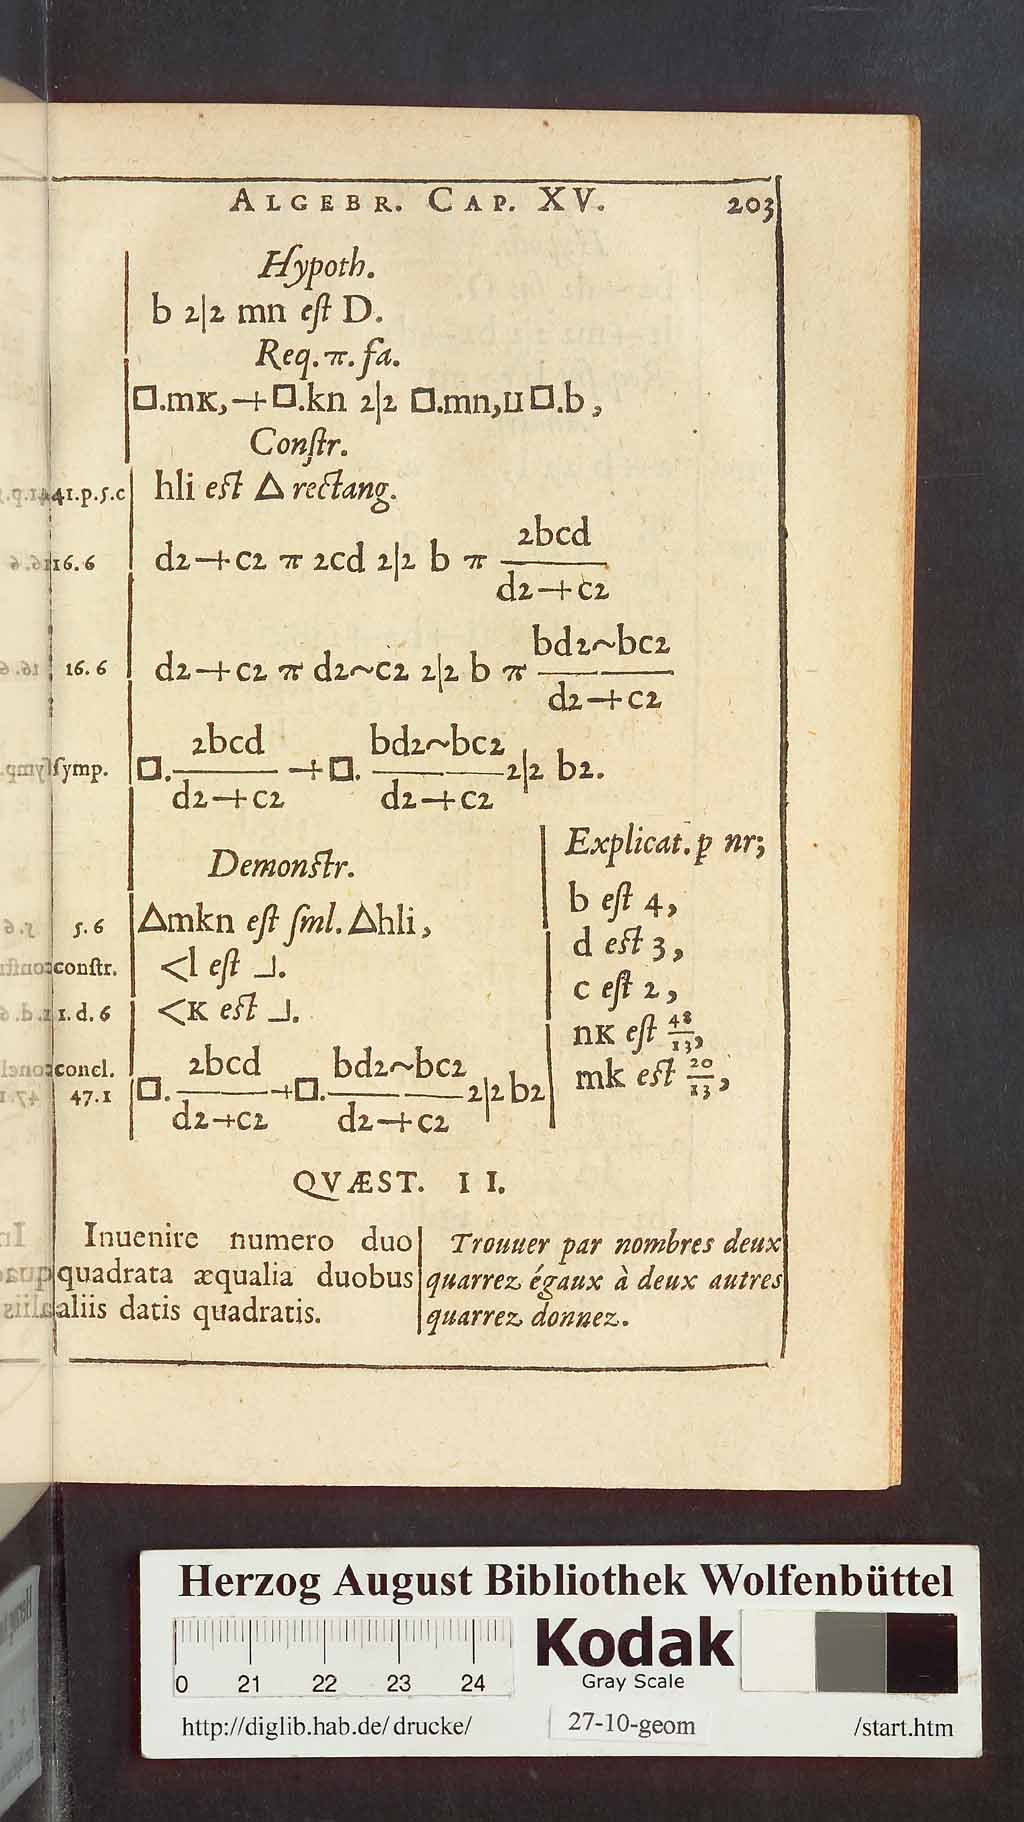 ALGEBR. CAP. XV. 203
Hypoth.
b 2|2 mn eſt D.
Req. π. fa.
□.mK, -+ □.kn 2|2 □.mn, ⊔ □.b,
Conſtr.
41.p.5.c hli eſt △ rectang.
16.6 d2 -+ c2 π 2cd 2|2 b π 2bcd / d2 -+ c2
16.6 d2 -+ c2 π d2 ~ c2 2|2 b π bd2 ~ bc2 / d2 -+ c2
ſymp. □. 2bcd / d2 -+ c2 -+ □. bd2 ~ bc2 / d2 -+ c2 2|2 b2.
Demonſtr.
5.6 △mkn eſt ſml. △hli,
conſtr. <l eſt ⅃.
1.d.6 <K eſt ⅃.
concl.
47.1 □. 2bcd / d2 -+ c2 -+ □. bd2 ~ bc2 / d2 -+ c2 2|2 b2
Explicat. p nr;
b eſt 4,
d eſt 3,
c eſt 2,
nK eſt 48/13,
mk eſt 20/13,
QVÆST. II.
Inuenire numero duo
quadrata æqualia duobus
aliis datis quadratis.
Trouuer par nombres deux
quarrez égaux à deux autres
quarrez donnez.
Herzog August Bibliothek Wolfenbüttel
0 21 22 23 24
Kodak
Gray Scale
http://diglib.hab.de/drucke/ 27-10-geom /start.htm